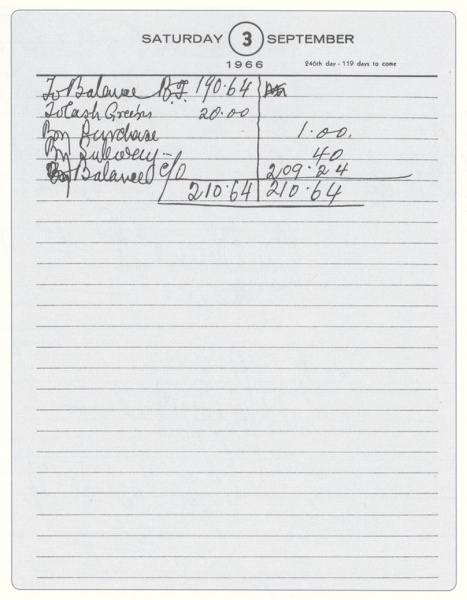 SATURDAY 3 SEPTEMBER
1966 246th day - 119 days to come
To Balance B.F. 190.64
To Cash Green 20.00
By Purchase 1.00.
By Subway - 40
By Balance C/D 209.24
210.64 210.64